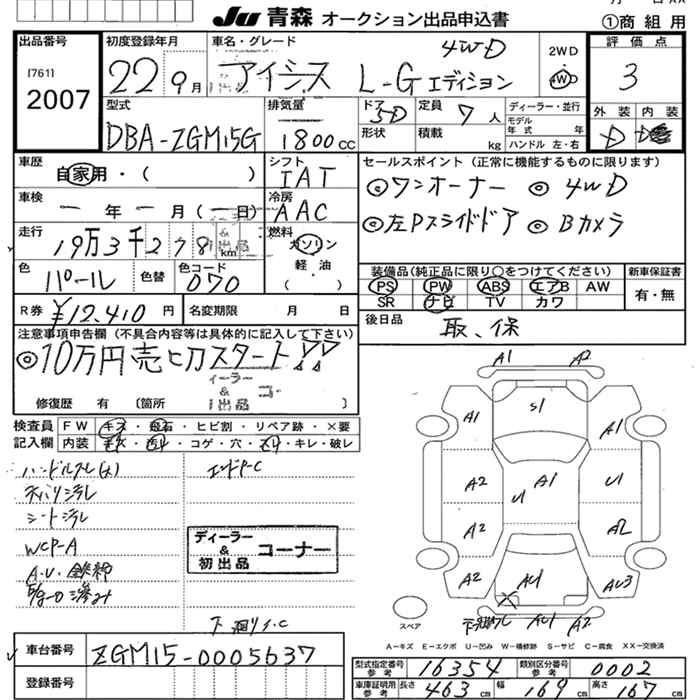 Ju 青森 オークション出品申込書
①商 組 用
出品番号
[761]
2007
初度登録年月
22 9月
車名・グレード
アイシス L-Gエディション
4WD
2WD
4WD
評価点
3
外装 内装
D D
型式
DBA-ZGM15G
排気量
1800cc
ドア
5D
形状
定員
7人
積載
kg
ディーラー・並行
モデル年式 年
ハンドル 左・右
車歴
自家用・( )
シフト
IAT
車検
ー年ー月(ー日)
冷房
AAC
走行
19万3千278km
燃料
ガソリン
軽油
( )
色
パール
色替
色コード
070
R券
¥12,410円
名変期限 月 日
セールスポイント(正常に機能するものに限ります)
◎ワンオーナー ◎4WD
◎左Pスライドドア ◎Bカメラ
装備品(純正品に限り○をつけてください)
PS PW ABS エアB AW
SR ナビ TV カワ
新車保証書
有・無
後日品
取、保
注意事項申告欄(不具合内容等は具体的に記入して下さい)
◎10万円売切スタート!!
修復歴 有 (箇所 )
検査員
記入欄
FW キズ・飛石・ヒビ割・リペア跡・×要
内装 キズ・汚レ・コゲ・穴・スリ・キレ・破レ
ハンドルスレ(大)
天バリ汚レ
シート汚レ
WCP-A
ディーラー
&
初出品
コーナー
車台番号
ZGM15-0005637
登録番号
A1 A2
A1 S1 A1
A2 U1 A1 U1
A2 A2
A2 AU1 AU3
AU1 A2
スペア
A-キズ E-エクボ U-凹み W-補修跡 S-サビ C-腐食 XX-交換済
型式指定番号
参考
16354
類別区分番号
参考
0002
車庫証明用
参考
長さ 463cm 幅 169cm 高さ 167cm